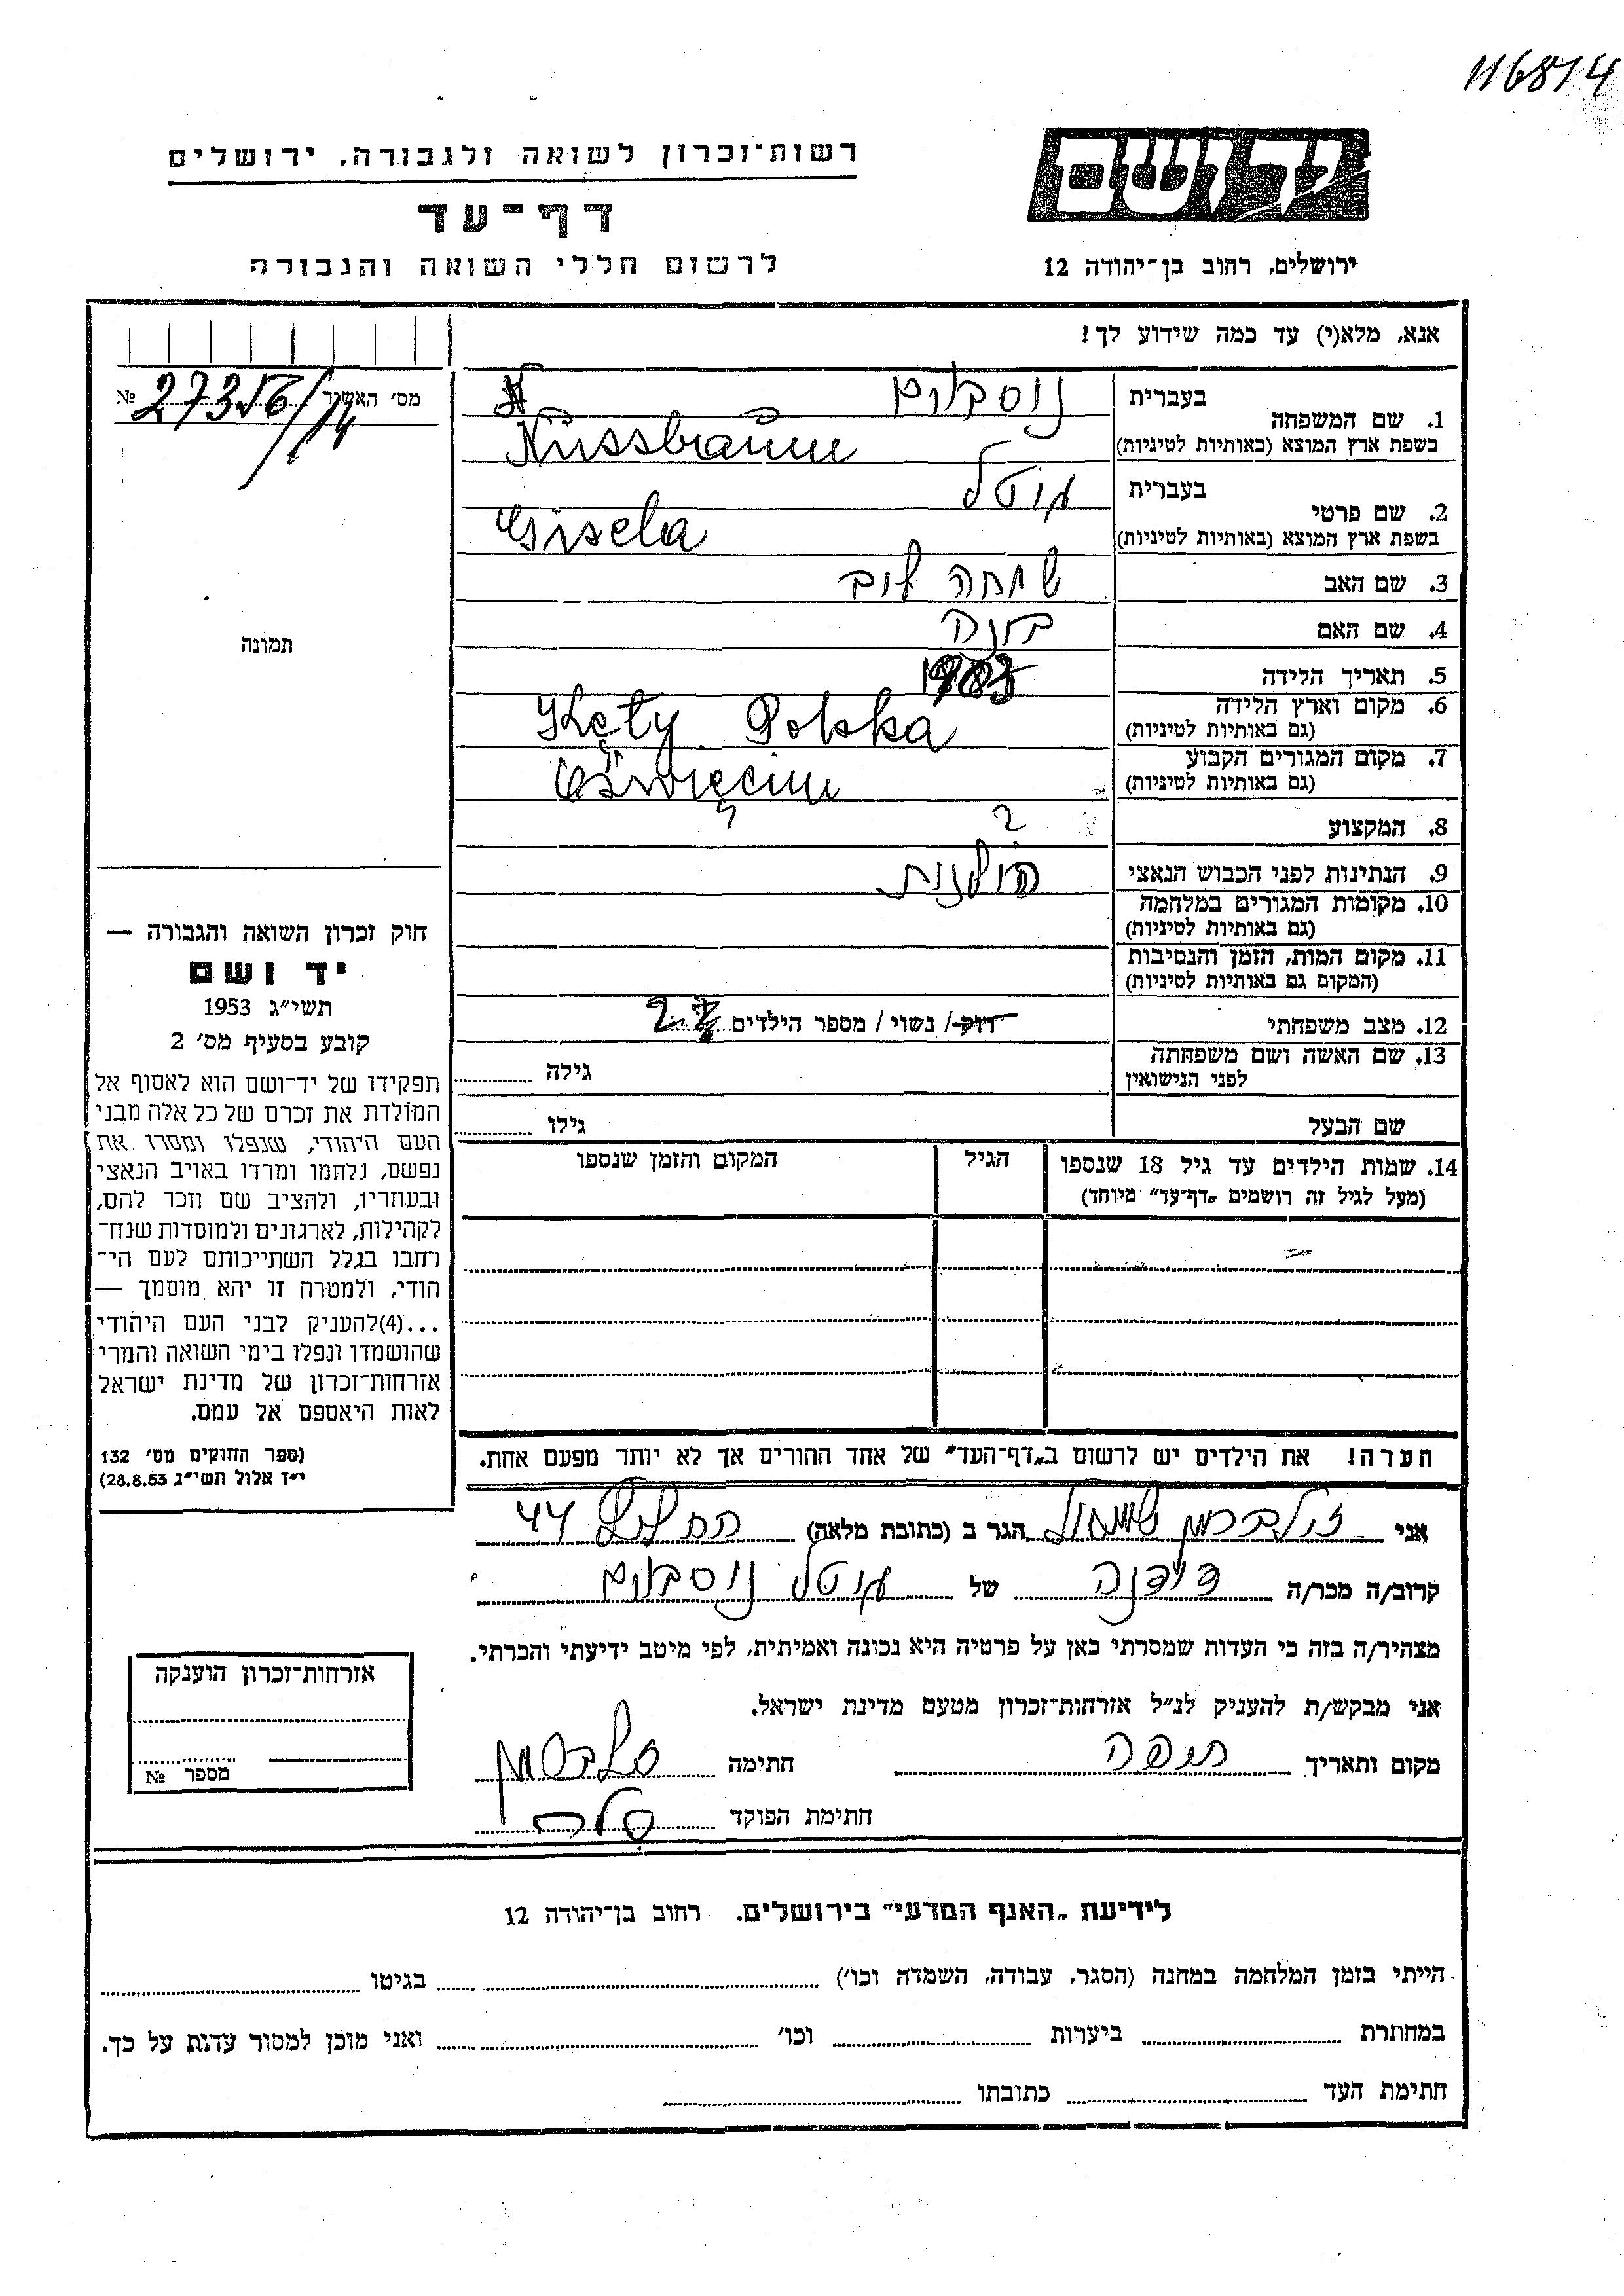 116814
רשות־זכרון לשואה ולגבורה, ירושלים
דף־עד
לרשום חללי השואה והגבורה
יד ושם
ירושלים, רחוב בן־יהודה 12
אנא, מלא(י) עד כמה שידוע לך!
מס׳ האשור 27356/14 №
תמונה
1. שם המשפחה
בעברית נוסבוים
בשפת ארץ המוצא (באותיות לטיניות) Nüssbaum
2. שם פרטי
בעברית גיטל
בשפת ארץ המוצא (באותיות לטיניות) Gisela
3. שם האב שמחה לוב
4. שם האם
5. תאריך הלידה 1903
6. מקום וארץ הלידה
(גם באותיות לטיניות) Kęty Polska
7. מקום המגורים הקבוע
(גם באותיות לטיניות) Oświęcim
8. המקצוע ?
9. הנתינות לפני הכבוש הנאצי פולנית
10. מקומות המגורים במלחמה
(גם באותיות לטיניות)
11. מקום המות, הזמן והנסיבות
(המקום גם באותיות לטיניות)
12. מצב משפחתי רווק / נשוי / מספר הילדים 2
13. שם האשה ושם משפחתה
לפני הנישואין
גילה
שם הבעל גילו
14. שמות הילדים עד גיל 18 שנספו
(מעל לגיל זה רושמים „דף־עד״ מיוחד)
הגיל
המקום והזמן שנספו
חוק זכרון השואה והגבורה —
יד ושם
תשי״ג 1953
קובע בסעיף מס׳ 2
תפקידו של יד־ושם הוא לאסוף אל
המולדת את זכרם של כל אלה מבני
העם היהודי, שנפלו ומסרו את
נפשם, נלחמו ומרדו באויב הנאצי
ובעוזריו, ולהציב שם וזכר להם,
לקהילות, לארגונים ולמוסדות שנח־
רבו בגלל השתייכותם לעם הי־
הודי, ולמטרה זו יהא מוסמך —
...(4)להעניק לבני העם היהודי
שהושמדו ונפלו בימי השואה והמרי
אזרחות־זכרון של מדינת ישראל
לאות היאספם אל עמם.
(ספר החוקים מס׳ 132
י״ז אלול תשי״ג 28.8.53)
הערה! את הילדים יש לרשום ב„דף־העד״ של אחד ההורים אך לא יותר מפעם אחת.
אני זילברמן שמואל הגר ב (כתובת מלאה) החלוץ 44
קרוב/ה מכר/ה דודנה של גיטל נוסבוים
מצהיר/ה בזה כי העדות שמסרתי כאן על פרטיה היא נכונה ואמיתית, לפי מיטב ידיעתי והכרתי.
אני מבקש/ת להעניק לנ״ל אזרחות־זכרון מטעם מדינת ישראל.
מקום ותאריך חיפה חתימה זילברמן
חתימת הפוקד
אזרחות־זכרון הוענקה
מספר №
לידיעת „האגף המדעי״ בירושלים. רחוב בן־יהודה 12
הייתי בזמן המלחמה במחנה (הסגר, עבודה, השמדה וכו׳) בגיטו
במחתרת ביערות וכו׳ ואני מוכן למסור עדות על כך.
חתימת העד כתובתו